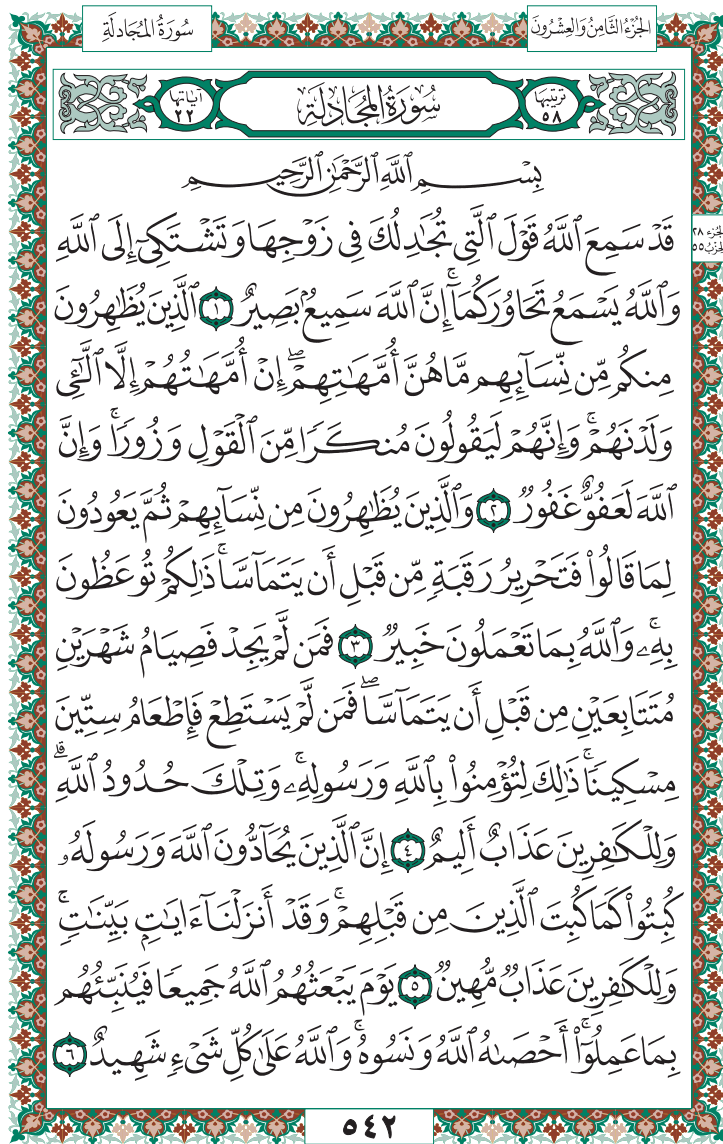 سُورَةُ المُجَادلَةِ
الجُزْءُ الثَّامِنُ وَالعِشْرُونَ
ترتيبها ٥٨
سُورَةُ المُجَادلَةِ
آياتها ٢٢
بِسْمِ ٱللَّهِ ٱلرَّحْمَٰنِ ٱلرَّحِيمِ
قَدْ سَمِعَ ٱللَّهُ قَوْلَ ٱلَّتِى تُجَٰدِلُكَ فِى زَوْجِهَا وَتَشْتَكِىٓ إِلَى ٱللَّهِ
الجزء ٢٨
الحزب ٥٥
وَٱللَّهُ يَسْمَعُ تَحَاوُرَكُمَآ ۚ إِنَّ ٱللَّهَ سَمِيعٌۢ بَصِيرٌ ١ ٱلَّذِينَ يُظَٰهِرُونَ
مِنكُم مِّن نِّسَآئِهِم مَّا هُنَّ أُمَّهَٰتِهِمْ ۖ إِنْ أُمَّهَٰتُهُمْ إِلَّا ٱلَّٰٓـِٔى
وَلَدْنَهُمْ ۚ وَإِنَّهُمْ لَيَقُولُونَ مُنكَرًا مِّنَ ٱلْقَوْلِ وَزُورًا ۚ وَإِنَّ
ٱللَّهَ لَعَفُوٌّ غَفُورٌ ٢ وَٱلَّذِينَ يُظَٰهِرُونَ مِن نِّسَآئِهِمْ ثُمَّ يَعُودُونَ
لِمَا قَالُوا۟ فَتَحْرِيرُ رَقَبَةٍ مِّن قَبْلِ أَن يَتَمَآسَّا ۚ ذَٰلِكُمْ تُوعَظُونَ
بِهِۦ ۚ وَٱللَّهُ بِمَا تَعْمَلُونَ خَبِيرٌ ٣ فَمَن لَّمْ يَجِدْ فَصِيَامُ شَهْرَيْنِ
مُتَتَابِعَيْنِ مِن قَبْلِ أَن يَتَمَآسَّا ۖ فَمَن لَّمْ يَسْتَطِعْ فَإِطْعَامُ سِتِّينَ
مِسْكِينًا ۚ ذَٰلِكَ لِتُؤْمِنُوا۟ بِٱللَّهِ وَرَسُولِهِۦ ۚ وَتِلْكَ حُدُودُ ٱللَّهِ ۗ
وَلِلْكَٰفِرِينَ عَذَابٌ أَلِيمٌ ٤ إِنَّ ٱلَّذِينَ يُحَآدُّونَ ٱللَّهَ وَرَسُولَهُۥ
كُبِتُوا۟ كَمَا كُبِتَ ٱلَّذِينَ مِن قَبْلِهِمْ ۚ وَقَدْ أَنزَلْنَآ ءَايَٰتٍۭ بَيِّنَٰتٍ ۚ
وَلِلْكَٰفِرِينَ عَذَابٌ مُّهِينٌ ٥ يَوْمَ يَبْعَثُهُمُ ٱللَّهُ جَمِيعًا فَيُنَبِّئُهُم
بِمَا عَمِلُوٓا۟ ۚ أَحْصَىٰهُ ٱللَّهُ وَنَسُوهُ ۚ وَٱللَّهُ عَلَىٰ كُلِّ شَىْءٍ شَهِيدٌ ٦
٥٤٢